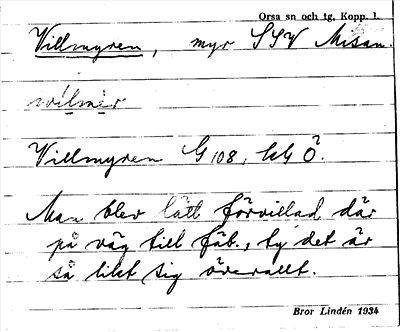 Orsa sn och tg, Kopp. l.
Villmyren, myr SSV Misan.
Villmyren G 108, hG Ö.
Man blev lätt förvillad där
på väg till fäb., ty det är
så likt sig överallt.
Bror Lindén 1934